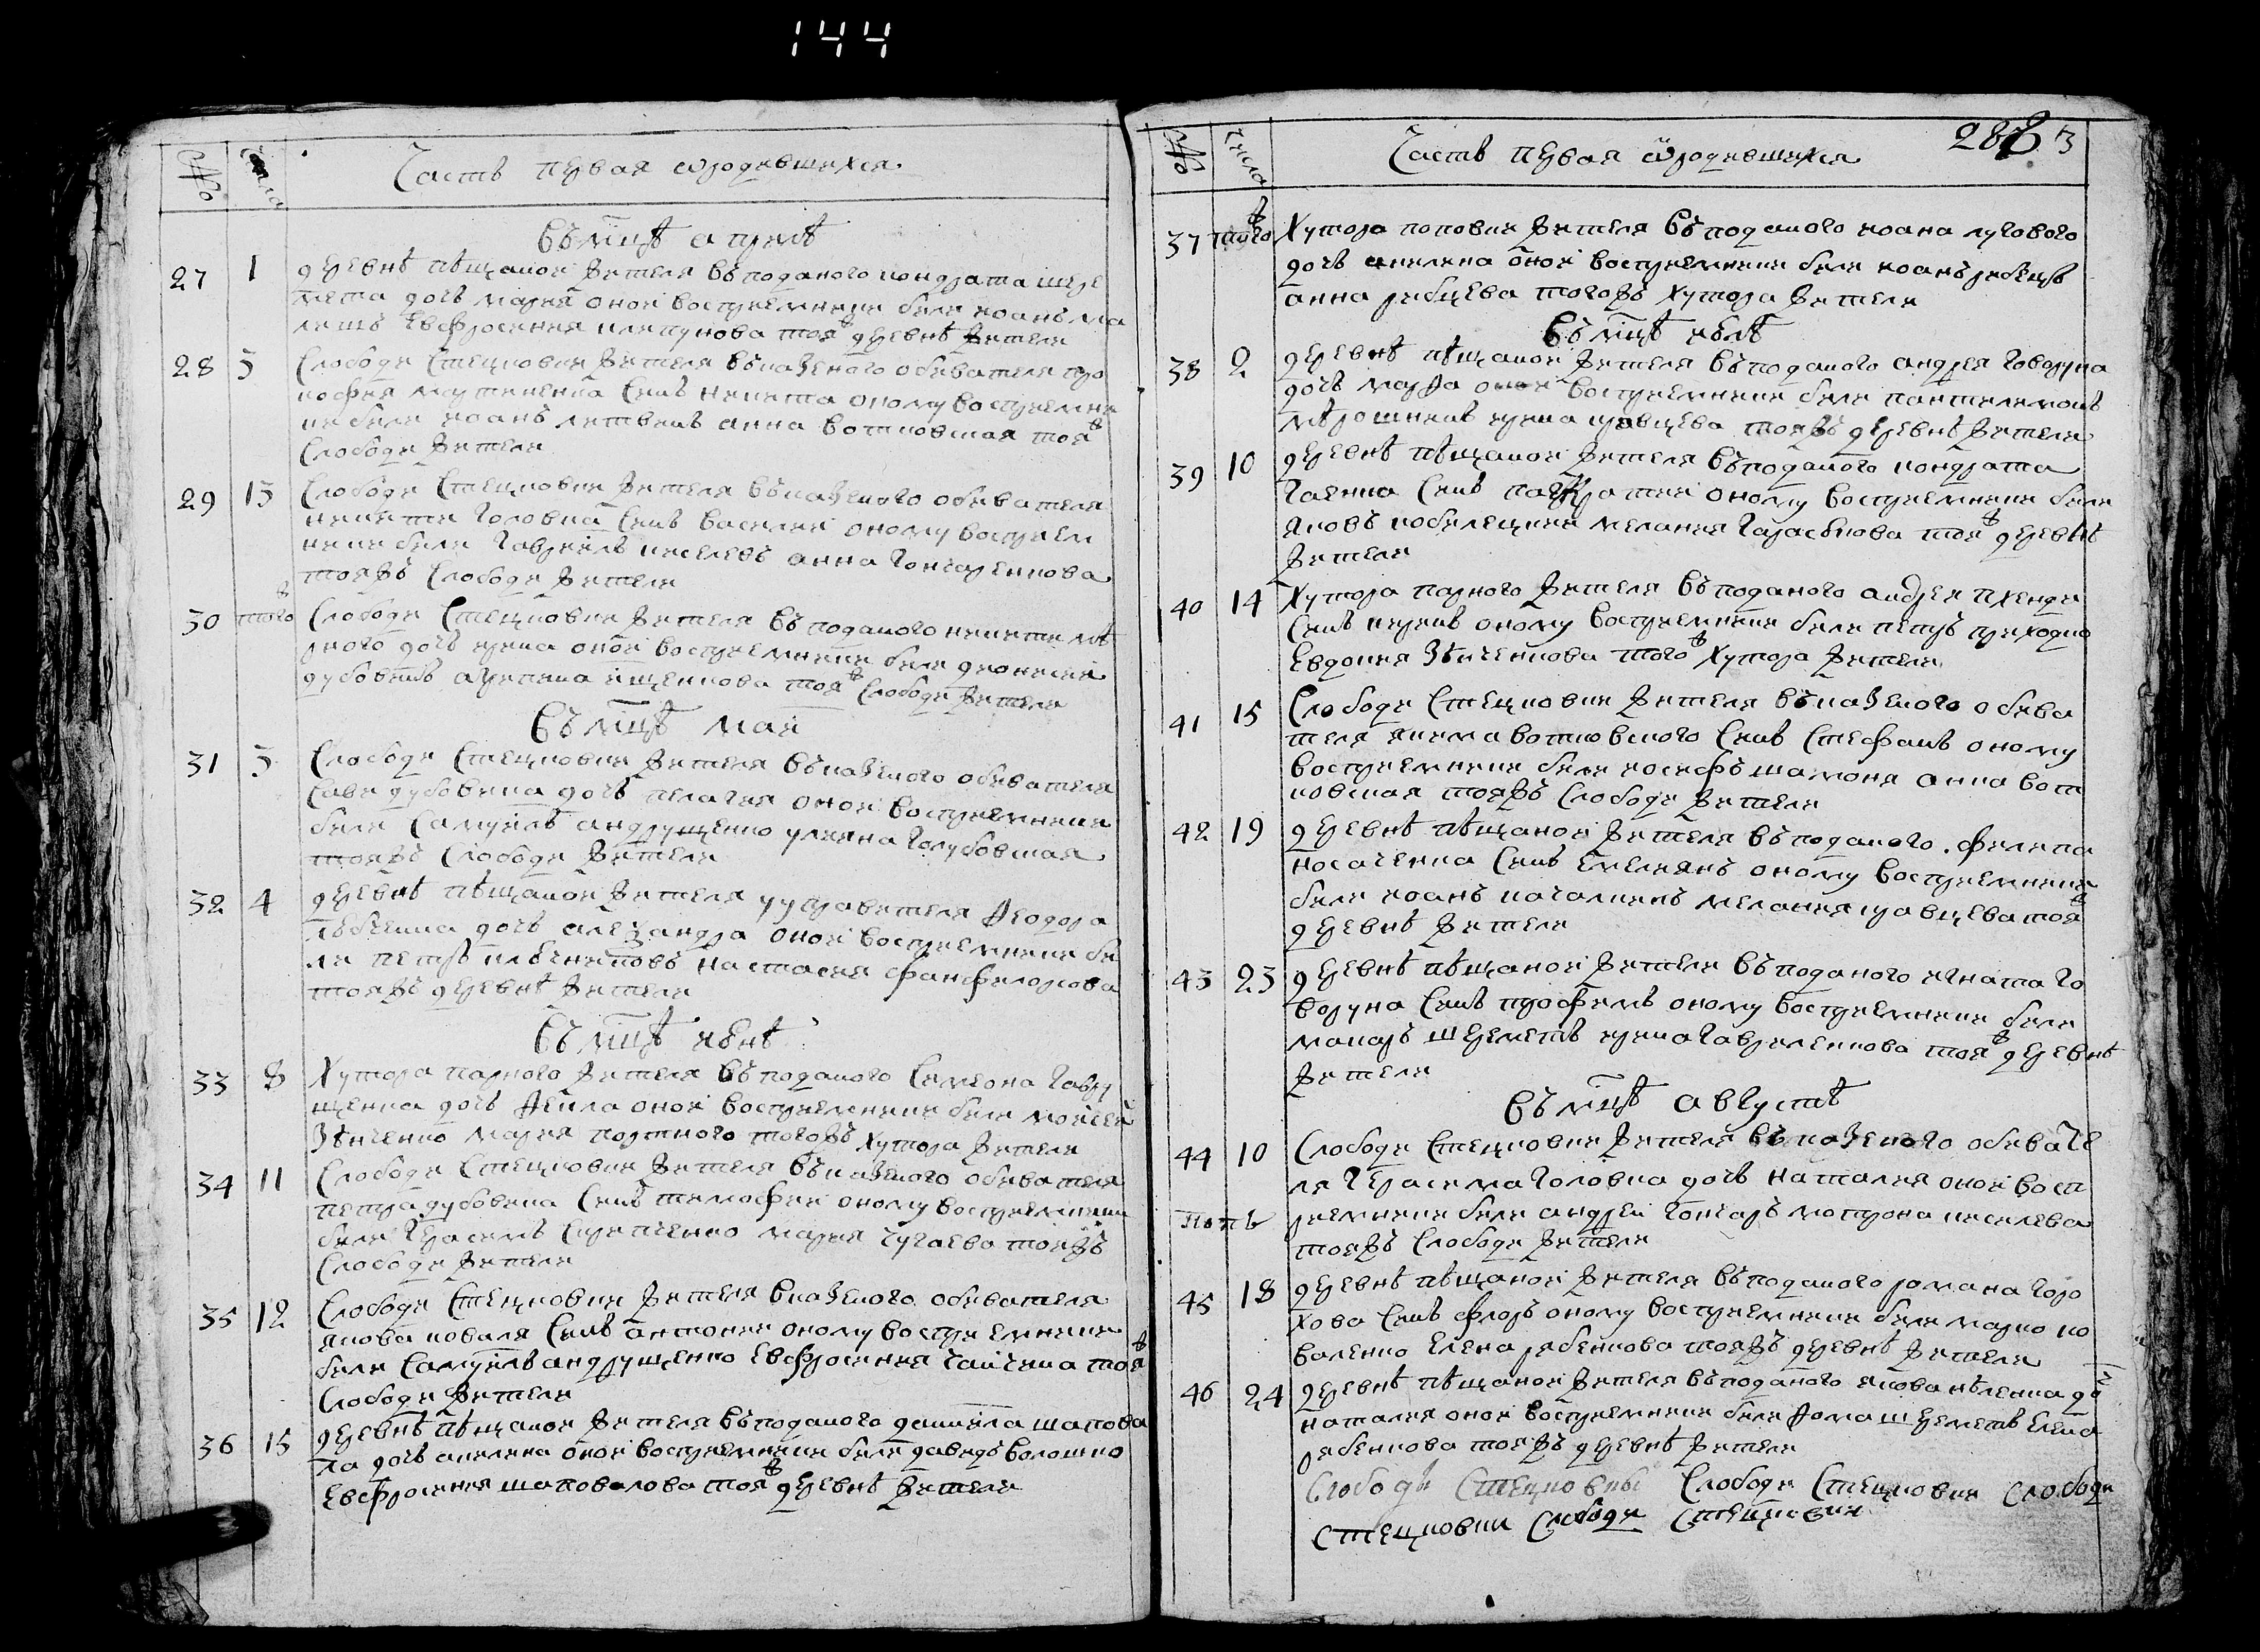 144
№ Числа Часть первая ѿродившихся
Въ мцѣ апрелѣ
27 1 деревнѣ пѣщаной жителя въподаного кондрата шере
мета дочь мария оной восприемники били иоанъ ма
лишъ Евфросиния клепунова тояж деревнѣ жители
28 3 Слободи Стецковки жителя въказеного обивателя про
кофия мутиненка синъ никита оному восприемни
ки били иоанъ литвинъ анна вотковская тояж
Слободи жители
29 13 Слободи Стецковки жителя въказеного обивателя
никити головка Синъ василий оному восприем
ники били гавриилъ киселевъ анна гончаренкова
тояжъ Слободи жители
30 того ж Слободи Стецковки жителя въподаного никити мѣ
рного дочь ирина оной восприемники били дионисий
дубовикъ агрепина ищенкова тояж Слободи жители
Въ мцѣ маи
31 3 Слободи Стецковки жителя въказеного обивателя
Сави дубовика дочь пелагия оной восприемники
били Самуилъ андрущенко улияна голубовская
тояжъ Слободи жители
32 4 деревнѣ пѣщаной жителя ууправителя Ѳеодора
дочь алеѯандра оной восприемники би
ли петръ настасия фанфилорова
тояжъ деревнѣ жители
Въ мцѣ июнѣ
33 8 Хутора парного жителя въподаного Симеона гавру
щенка дочь Ѳекла оной восприемники били мойсей
Зѣнченко мария портного тогожъ хутора жители
34 11 Слободи Стецковки жителя въказеного обивателя
петра дубовика Синъ тимофей оному восприемники
били герасимъ Скрипченко мария чугаева тояжъ
Слободи жители
35 12 Слободи Стецковки жителя вказеного обивателя
якова коваля Синъ антоний оному восприемники
били Самуилъ андрущенко Евфросиния чайчина тояж
Слободи жители
36 15 деревнѣ пѣщаной жителя въподаного даниила шапова
ла дочь акилина оной восприемники били давидъ волошко
Евфросиния шаповалова тояж деревнѣ жители
№ Число Часть первая ѿродившихся 283
37 того ж Хутора поповки жителя въподаного иоана лугового
дочь акилина оной восприемники били иоанъ рибецъ
анна рибцева тогожъ хутора жители
Въ мцѣ июлѣ
38 2 деревнѣ пѣщаной жителя въподаного андрея говоруна
дочь марѳа оной восприемники били пантелемонъ
мѣрошникъ ирина кравцева тояжъ деревнѣ жители
39 10 деревнѣ пѣщаной жителя въподаного кондрата
гаенка Синъ панкратий оному восприемники били
яковъ кобилецкий мелания гараськова тояж деревнѣ
жители
40 14 Хутора парного жителя въподаного андрея пхенди
Синъ кирикъ оному восприемники били петръ приходко
Евдокия Зѣнченкова того ж хутора жители
41 15 Слободи Стецковки жителя въказеного обива
теля якима вотковского Синъ Стефанъ оному
восприемники били иосифъ шамоня анна вот
ковская тояжъ Слободи жители
42 19 деревнѣ пѣщаной жителя въподаного филипа
носаченка Синъ Емелиянъ оному восприемники
били иоанъ качалникъ мелания кравцева тояж
деревнѣ жители
43 23 деревнѣ пѣщаной жителя въподаного игната го
воруна Синъ трофимъ оному восприемники били
макаръ шереметъ ирина гавриленкова тояж деревнѣ
жители
Въ мцѣ августѣ
44 10 Слободи Стецковки жителя въказеного обивате
ля герасима головка дочь наталия оной восп
риемники били андрей гончаръ мотрона киселева
тояжъ Слободи жители
Попъ
45 18 деревнѣ пѣщаной жителя въподаного романа горо
хова Синъ флоръ оному восприемники били марко ко
валенко Елена рябенкова тояжъ деревнѣ жители
46 24 деревнѣ пѣщаной жителя въподаного якова нѣленка доч
наталия оной восприемники били Ѳома шереметъ Елена
рябенкова тояжъ деревнѣ жители
Слободи Стецковки Слободи Стецковки Слободи
Стецковки Слободи Стецковки